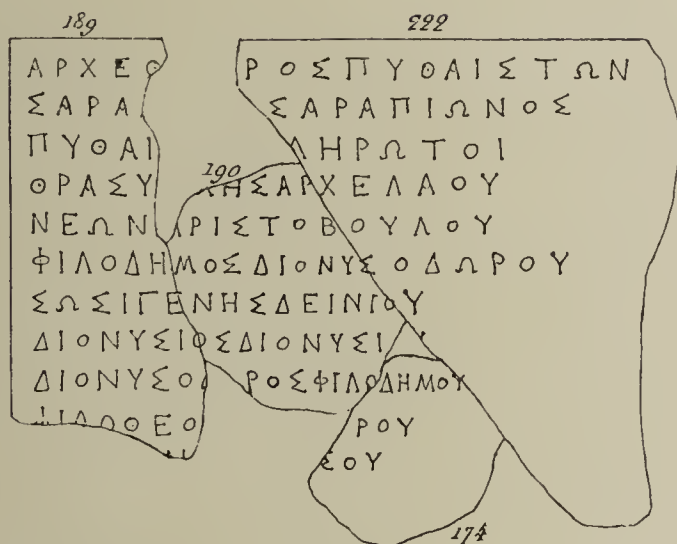 189 222
ΑΡΧΕΘ ΡΟΣΠΥΘΑΙΣΤΩΝ
ΣΑΡΑ ΣΑΡΑΠΙΩΝΟΣ
ΠΥΘΑΙ ΛΗΡΩΤΟΙ
190
ΘΡΑΣΥ ΛΗΣΑΡΧΕΛΑΟΥ
ΝΕΩΝΑΡΙΣΤΟΒΟΥΛΟΥ
ΦΙΛΟΔΗΜΟΣΔΙΟΝΥΣΟΔΩΡΟΥ
ΣΩΣΙΓΕΝΗΣΔΕΙΝΙΟΥ
ΔΙΟΝΥΣΙΟΣΔΙΟΝΥΣΙ Υ
ΔΙΟΝΥΣΟ ΡΟΣΦΙΛΟΔΗΜΟΥ
ΦΙΛΟΘΕΟ ΡΟΥ
ΣΟΥ
174